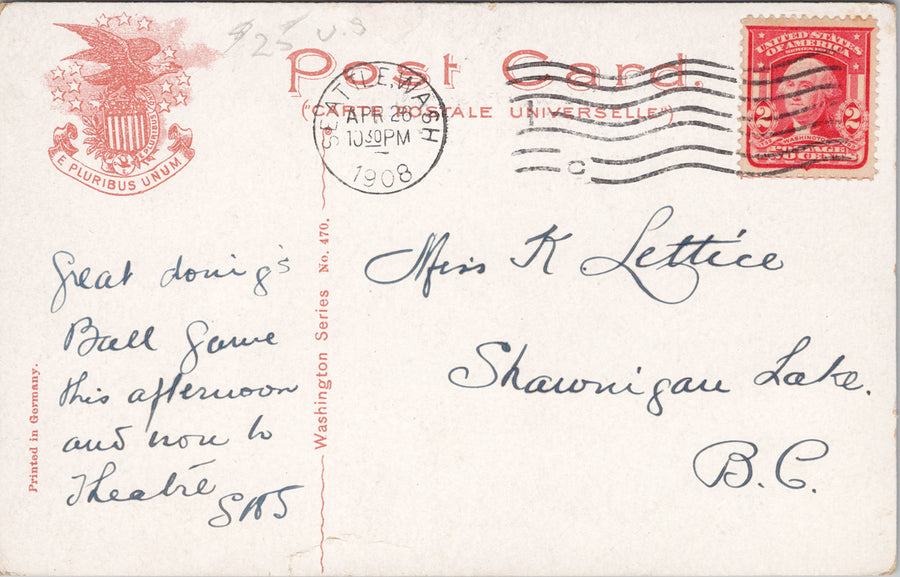 $25 U.S
Post Card.
("CARTE POSTALE UNIVERSELLE")
E PLURIBUS UNUM
SEATTLE, WASH
APR 28
1030PM
1908
C
UNITED STATES
OF AMERICA
2 2
WASHINGTON
Great doing's
Ball Game
this afternoon
and now to
Theatre
Miss K Lettice
Shawnigan Lake.
B.C.
Washington Series No. 470.
Printed in Germany.